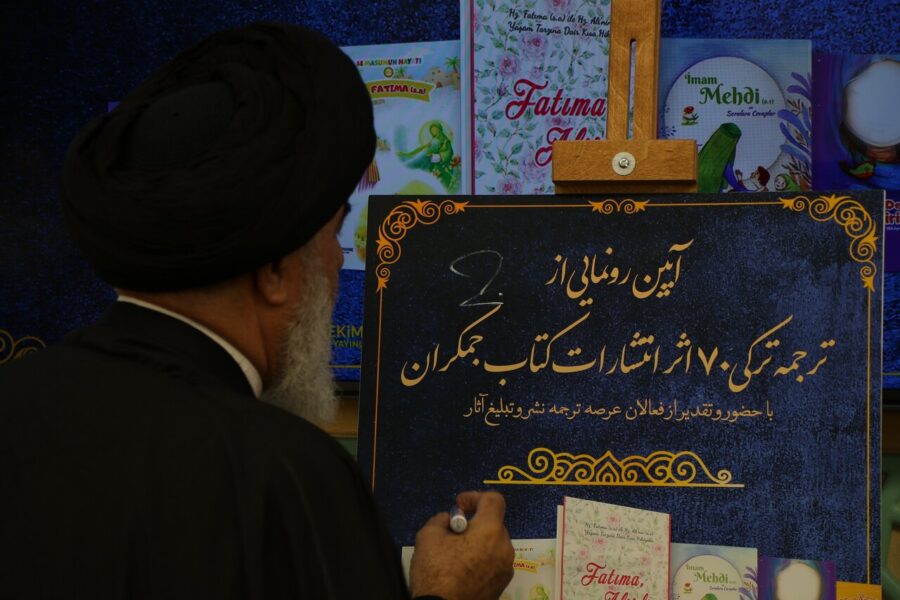 MASUMUN HAYATI
FATIMA (s.a)
Hz. Fatıma (s.a) ile Hz. Ali'nin
Yaşam Tarzına Dair Kısa Hik
Fatıma,
İmam
Mehdi (a.s)
Sorulara Cevaplar
آیین رونمایی از
ترجمه ترکی ۷۰ اثر انتشارات کتاب جمکران
با حضور و تقدیر از فعالان عرصه ترجمه نشر و تبلیغ آثار
Hz. Fatıma (s.a) ile Hz. Ali'nin
Yaşam Tarzına Dair Kısa
Fatıma,
FATIMA
İmam
Mehdi